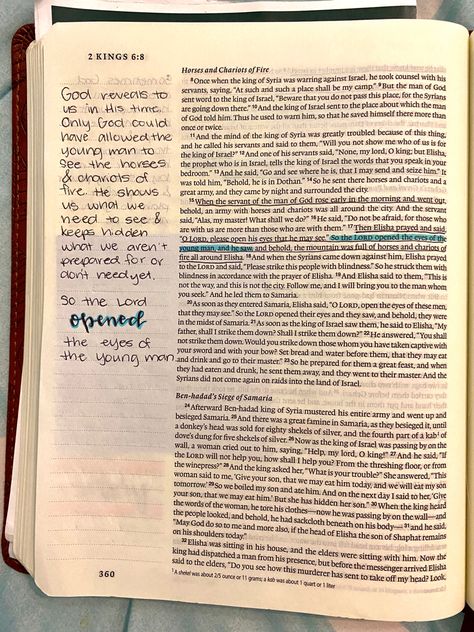 2 KINGS 6:8
God reveals to
us in His time.
Only God could
have allowed the
young man to
see the horses
& chariots of
fire. He shows
us what we
need to see &
keeps hidden
what we aren't
prepared for or
don't need yet.
So the Lord
opened
the eyes of
the young man
Horses and Chariots of Fire
8Once when the king of Syria was warring against Israel, he took counsel with his
servants, saying, "At such and such a place shall be my camp." 9But the man of God
sent word to the king of Israel, "Beware that you do not pass this place, for the Syrians
are going down there." 10And the king of Israel sent to the place about which the man
of God told him. Thus he used to warn him, so that he saved himself there more than
once or twice.
11And the mind of the king of Syria was greatly troubled because of this thing,
and he called his servants and said to them, "Will you not show me who of us is for
the king of Israel?" 12And one of his servants said, "None, my lord, O king; but Elisha,
the prophet who is in Israel, tells the king of Israel the words that you speak in your
bedroom." 13And he said, "Go and see where he is, that I may send and seize him." It
was told him, "Behold, he is in Dothan." 14So he sent there horses and chariots and a
great army, and they came by night and surrounded the city.
15When the servant of the man of God rose early in the morning and went out,
behold, an army with horses and chariots was all around the city. And the servant
said, "Alas, my master! What shall we do?" 16He said, "Do not be afraid, for those who
are with us are more than those who are with them." 17Then Elisha prayed and said,
"O LORD, please open his eyes that he may see." So the LORD opened the eyes of the
young man, and he saw, and behold, the mountain was full of horses and chariots of
fire all around Elisha. 18And when the Syrians came down against him, Elisha prayed
to the LORD and said, "Please strike this people with blindness." So he struck them with
blindness in accordance with the prayer of Elisha. 19And Elisha said to them, "This is
not the way, and this is not the city. Follow me, and I will bring you to the man whom
you seek." And he led them to Samaria.
20As soon as they entered Samaria, Elisha said, "O LORD, open the eyes of these men,
that they may see." So the LORD opened their eyes and they saw, and behold, they were
in the midst of Samaria. 21As soon as the king of Israel saw them, he said to Elisha, "My
father, shall I strike them down? Shall I strike them down?" 22He answered, "You shall
not strike them down. Would you strike down those whom you have taken captive with
your sword and with your bow? Set bread and water before them, that they may eat
and drink and go to their master." 23So he prepared for them a great feast, and when
they had eaten and drunk, he sent them away, and they went to their master. And the
Syrians did not come again on raids into the land of Israel.
Ben-hadad's Siege of Samaria
24Afterward Ben-hadad king of Syria mustered his entire army and went up and
besieged Samaria. 25And there was a great famine in Samaria, as they besieged it, until
a donkey's head was sold for eighty shekels of silver, and the fourth part of a kab1 of
dove's dung for five shekels of silver. 26Now as the king of Israel was passing by on the
wall, a woman cried out to him, saying, "Help, my lord, O king!" 27And he said, "If
the LORD will not help you, how shall I help you? From the threshing floor, or from
the winepress?" 28And the king asked her, "What is your trouble?" She answered, "This
woman said to me, 'Give your son, that we may eat him today, and we will eat my son
tomorrow.' 29So we boiled my son and ate him. And on the next day I said to her, 'Give
your son, that we may eat him.' But she has hidden her son." 30When the king heard
the words of the woman, he tore his clothes—now he was passing by on the wall—and
the people looked, and behold, he had sackcloth beneath on his body— 31and he said,
"May God do so to me and more also, if the head of Elisha the son of Shaphat remains
on his shoulders today."
32Elisha was sitting in his house, and the elders were sitting with him. Now the
king had dispatched a man from his presence, but before the messenger arrived Elisha
said to the elders, "Do you see how this murderer has sent to take off my head? Look,
360
1 A shekel was about 2/5 ounce or 11 grams; a kab was about 1 quart or 1 liter